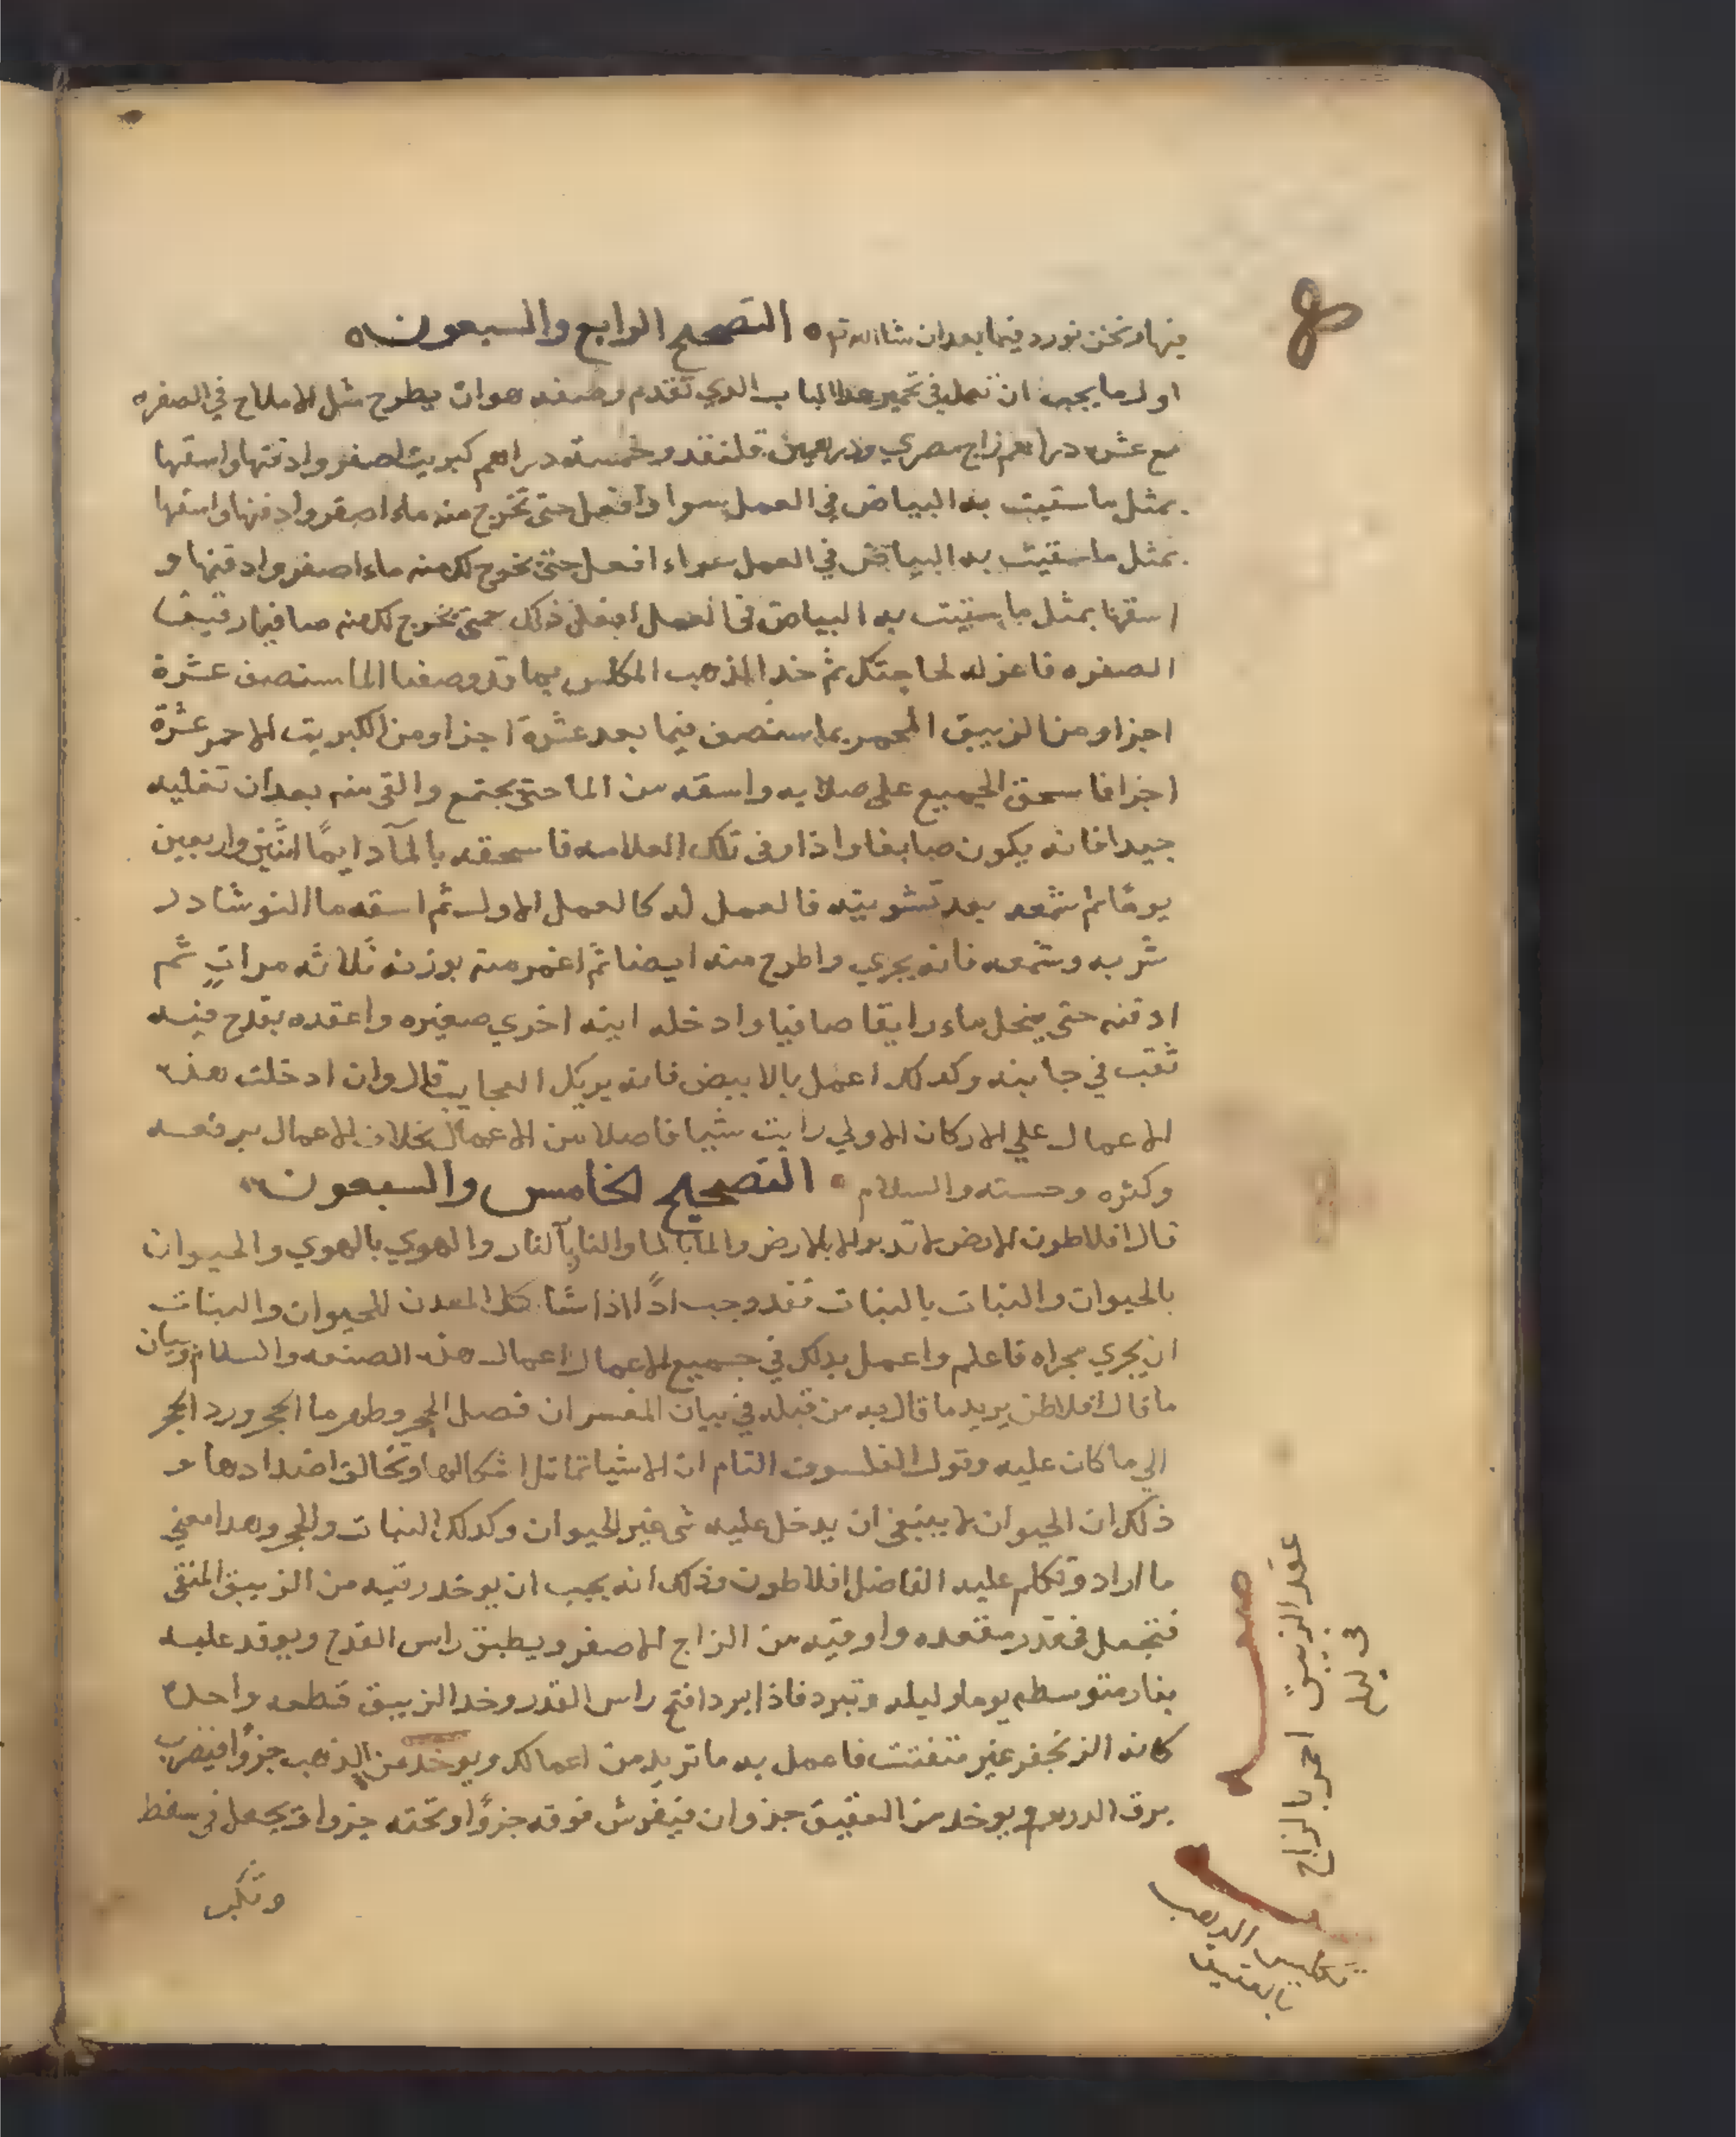 منها ونحن نورد فيما بعد ان شا الله تع ه التصحيح الرابع والسبعون ه
اول ما يجب ان تعمله في تحمير هدا الباب الدي تقدم وصفه هو ان يطرح مثل الاملاح في الصفره
مع عشره دراهم زاج مصري ودرهمين قلقند وخمسه دراهم كبريت اصفر وادفنها واسقها
بمثل ما سقيت به البياض في العمل سوا وافعل حتى تخرج منه ماء اصفر وادفنها واسقها
بمثل ما سقيت به البياض في العمل سواء افعل حتى يخرج لك منه ماء اصفر وادفنها و
اسقها بمثل ما سقيت به البياض في العمل افعل ذلك حتى يخرج لك منه صافيا رقيقا
الصفره فاعزله لحاجتك ثم خد الذهب المكلس بما قد وصفنا الما سنصف عشرة
اجزا ومن الزيبق المحمر بما سنصف فيما بعد عشرة اجزا ومن الكبريت الاحمر عشرة
اجزا فاسحق الجميع على صلايه واسقه من الما حتى يجتمع والق منه بعد ان تقليه
جيدا فانه يكون صابغا واذا وفى تلك العلامه فاسحقه بالمآ دايمًا اثنين واربعين
يومًا ثم شمعه بعد تشويته فالعمل له كالعمل الاول ثم اسقه ما النوشادر
شربه وشمعه فانه يجري واطرح منه ايضا ثم اغمر منه بوزنه ثلاثه مراتٍ ثم
ادفنه حتى ينحل ماء رايقا صافيا وادخله ابيه اخري صغيره واعقده بقدح فيه
ثقب في جانبه وكدلك اعمل بالابيض فانه يريك العجايب قال وان ادخلت هذه
الاعمال علي الاركان الاولي رايت شيا فاصلا من الاعمال بخلاف الاعمال برفعه
وكثره وحسنه والسلام ه التصحيح الخامس والسبعون
قال افلاطون الارض لا تدبر الا بالارض والما بالما والنار بآلنار والهوي بالهوي والحيوان
بالحيوان والنبات بالنبات فقد وجب ادًا اذا شا كل المعدن للحيوان والنبات
ان يجري مجراه فاعلم واعمل بدلك في جميع الاعمال اعمال هذه الصنعه والسلام وبيان
ما قال افلاطن يريد ما قال به من قبله في بيان المفسر ان فصل الحجر وطهر ما الحجر ورد الحجر
الي ما كان عليه وقول الفلسوف التام ان الاشيا تماثل اشكالها وتخالف اضدادها و
ذلك ان الحيوان لا ينبغي ان يدخل عليه شي غير الحيوان وكدلك النبات والحجر وهدا معني
ما اراد وتكلم عليه الفاضل افلاطون وذلك انه يجب ان يوخد رقيه من الزيبق المنقي
فتجعل في قدر مقعده واوقيه من الزاج الاصفر ويطبق راس القدح ويوقد عليه
بنار متوسطه يوما وليله وتبرد فاذا برد افتح راس القدر وخد الزيبق قطعه واحده
كانه الزنجفر غير متفتت فاعمل به ما تريد من اعمالك ويوخد من الذهب جزوًا فيضرب
برق الدرهم ويوخد من العقيق جزوان فيفرش فوقه جزوًا وتحته جزوا ويجعل في سفط
وتكب
عقد الزيبق احمر بالزاج
في يوم
تكليس الدهب
بالعقيق